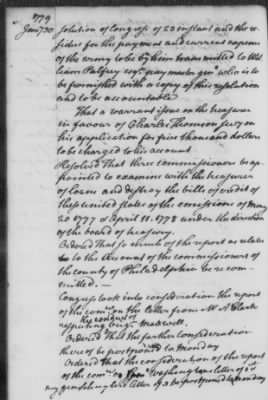 1779
Jany 30
solution of Congress of 23 instant and the re
sidue for the payment and current expences
of the army to be by him transmitted to Wil
liam Palfrey esqr. pay master genl who is to
be furnished with a copy of this resolution
and to be accountable
That a warrant issue on the treasurer
in favour of Charles Thomson secy on
his application for five thousand dollars
to be charged to his account
Resolved That three commissioners be ap
pointed to examine with the treasurer
of loans and destroy the bills of credit of
these united states of the emissions of May
20 1777 & April 11. 1778 under the direction
of the board of treasury.
Ordered That so much of the report as relates
to the Account of the commissioners of
the county of Philadelphia be recom
mitted. —
Congress took into consideration the report
of the comee. on the letter from A Clark
respecting the conduct of brigr. Maxwell
Ordered That the farther consideration
thereof be postponed to Monday
Ordered That the consideration of the report
of the comee. on genl Washingtons letter of 1st
be postponed to Monday